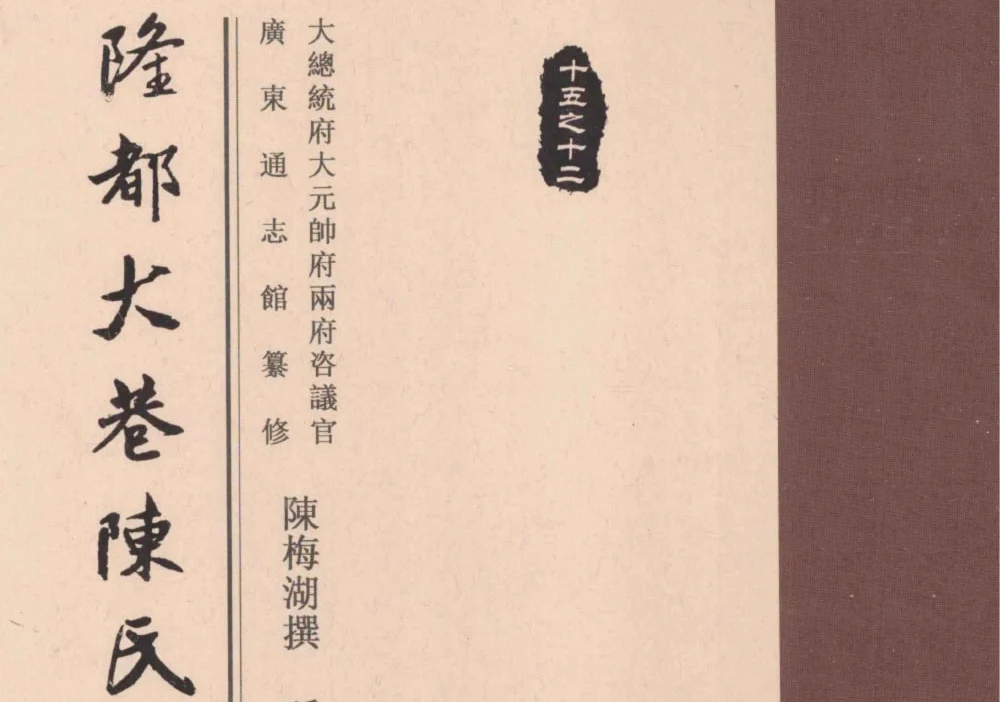 十五之十二
大總統府大元帥府兩府咨議官
廣東通志館纂修
陳梅湖撰
隆都大巷陳氏